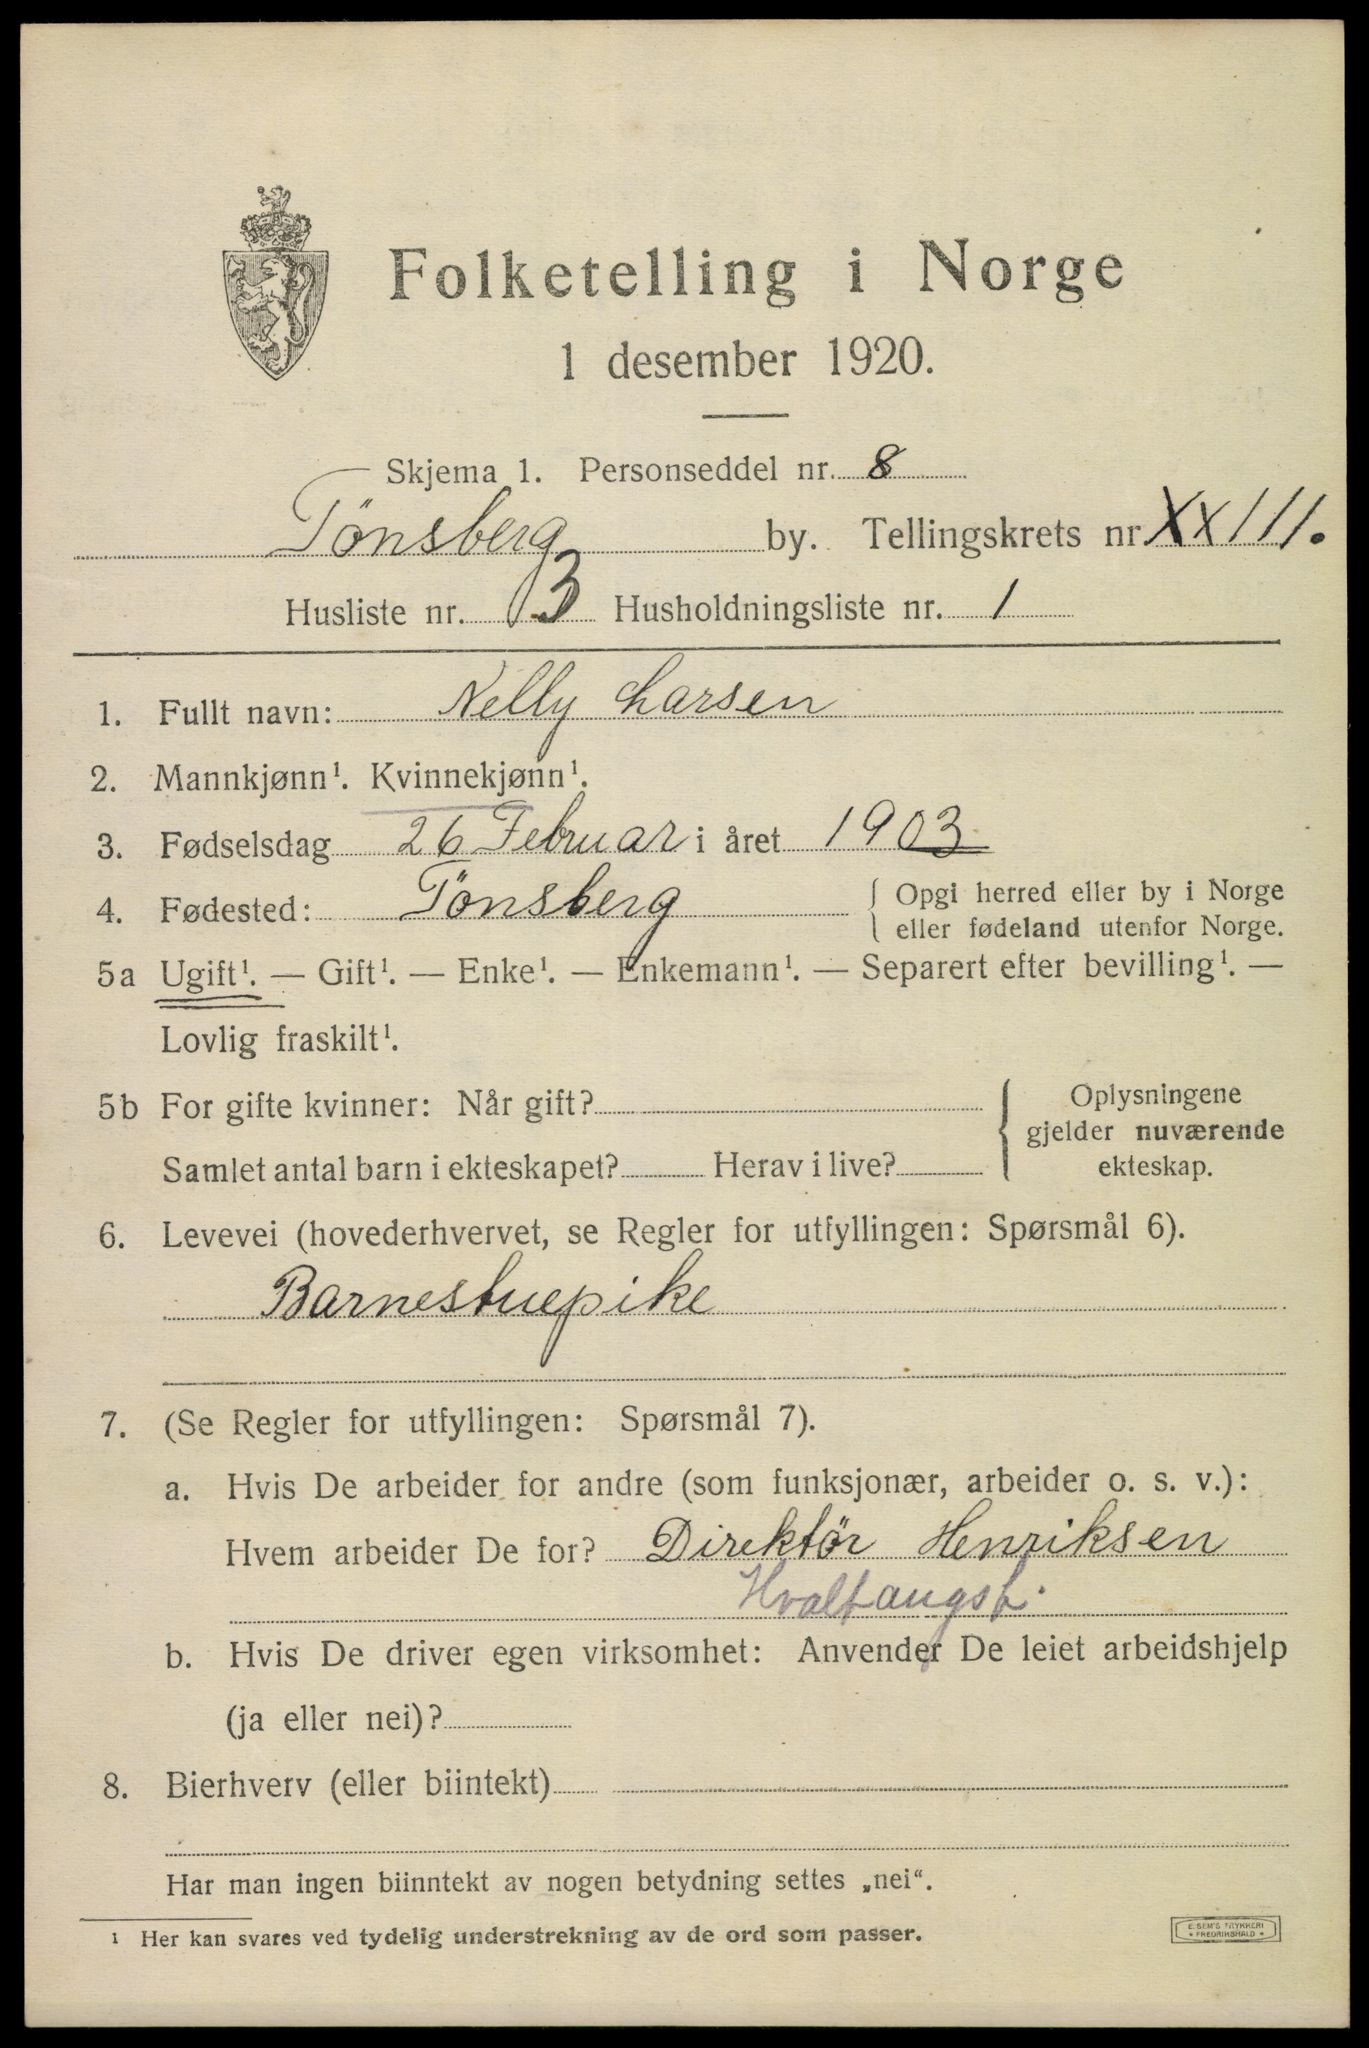 Folketelling i Norge
1 desember 1920.
Skjema 1. Personseddel nr. 8
Tönsberg by. Tellingskrets nr. XXIII.
Husliste nr. 3 Husholdningsliste nr. 1
1. Fullt navn: Nelly Larsen
2. Mannkjønn¹. Kvinnekjønn¹.
3. Fødselsdag 26 Februar i året 1903
4. Fødested: Tönsberg { Opgi herred eller by i Norge
eller fødeland utenfor Norge.
5a Ugift¹. — Gift¹. — Enke¹. — Enkemann¹. — Separert efter bevilling¹. —
Lovlig fraskilt¹.
5b For gifte kvinner: Når gift? { Oplysningene
gjelder nuværende
Samlet antal barn i ekteskapet? Herav i live? ekteskap.
6. Levevei (hovederhvervet, se Regler for utfyllingen: Spørsmål 6).
Barnestuepike
7. (Se Regler for utfyllingen: Spørsmål 7).
a. Hvis De arbeider for andre (som funksjonær, arbeider o. s. v.):
Hvem arbeider De for? Direktör Henriksen
Hvalfangst.
b. Hvis De driver egen virksomhet: Anvender De leiet arbeidshjelp
(ja eller nei)?
8. Bierhverv (eller biintekt) —
Har man ingen biinntekt av nogen betydning settes „nei“.
1 Her kan svares ved tydelig understrekning av de ord som passer.
E. SEM'S TRYKKERI
* FREDRIKSHALD *